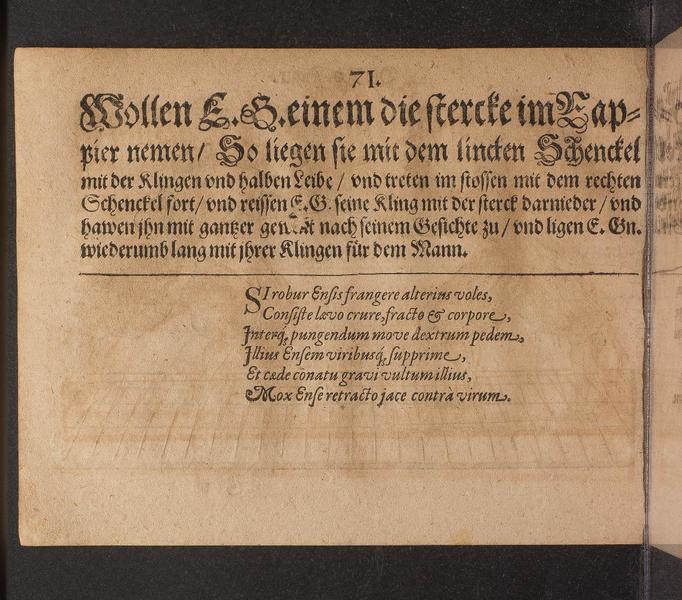 71.
Wollen E. G. einem die stercke im Rap⸗
pier nemen / So liegen sie mit dem lincken Schenckel
mit der Klingen vnd halben Leibe / vnd treten im stossen mit dem rechten
Schenckel fort / vnd reissen E. G. seine Kling mit der sterck darnieder / vnd
hawen jhn mit gantzer nach seinem Gesichte zu / vnd ligen E. Gn.
wiederumb lang mit jhrer Klingen für dem Mann.
SI robur Ensis frangere alterius voles,
Consiste lævo crure, fracto & corpore,
Interq́; pungendum move dextrum pedem,
Illius Ensem viribusq́; supprime,
Et cæde cōnatu gravi vultum illius,
Mox Ense retracto jace contrà virum.